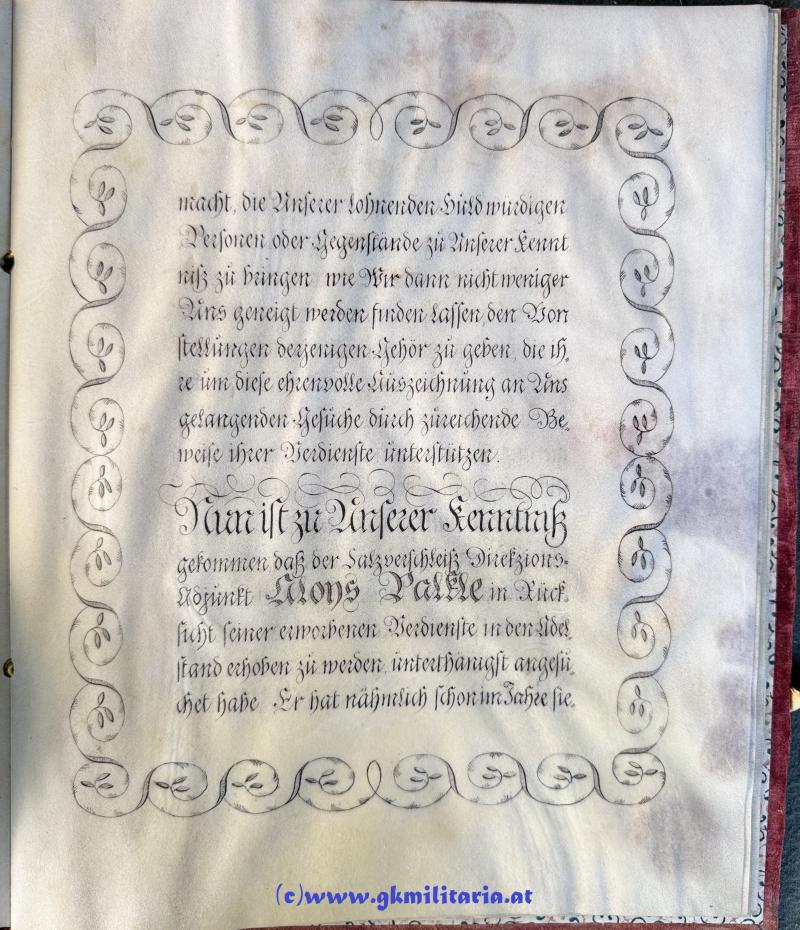 macht, die Unserer lohnenden Huld würdigen
Personen oder Gegenstände zu Unserer Kennt
niß zu bringen wie Wir dann nicht weniger
Uns geneigt werden finden lassen, den Vor
stellungen derjenigen Gehör zu geben, die ih,
re um diese ehrenvolle Auszeichnung an Uns
gelangenden Gesuche durch zureichende Be,
weise ihrer Verdienste unterstützen.
Nun ist zu Unserer Kenntniß
gekommen, daß der Salzverschleiß Direkzions-
Adjunkt Aloys in Rück,
sicht seiner erworbenen Verdienste in den Adel
stand erhoben zu werden, unterthänigst angesu,
chet habe Er hat nähmlich schon im Jahre sie,
(c)www.gkmilitaria.at